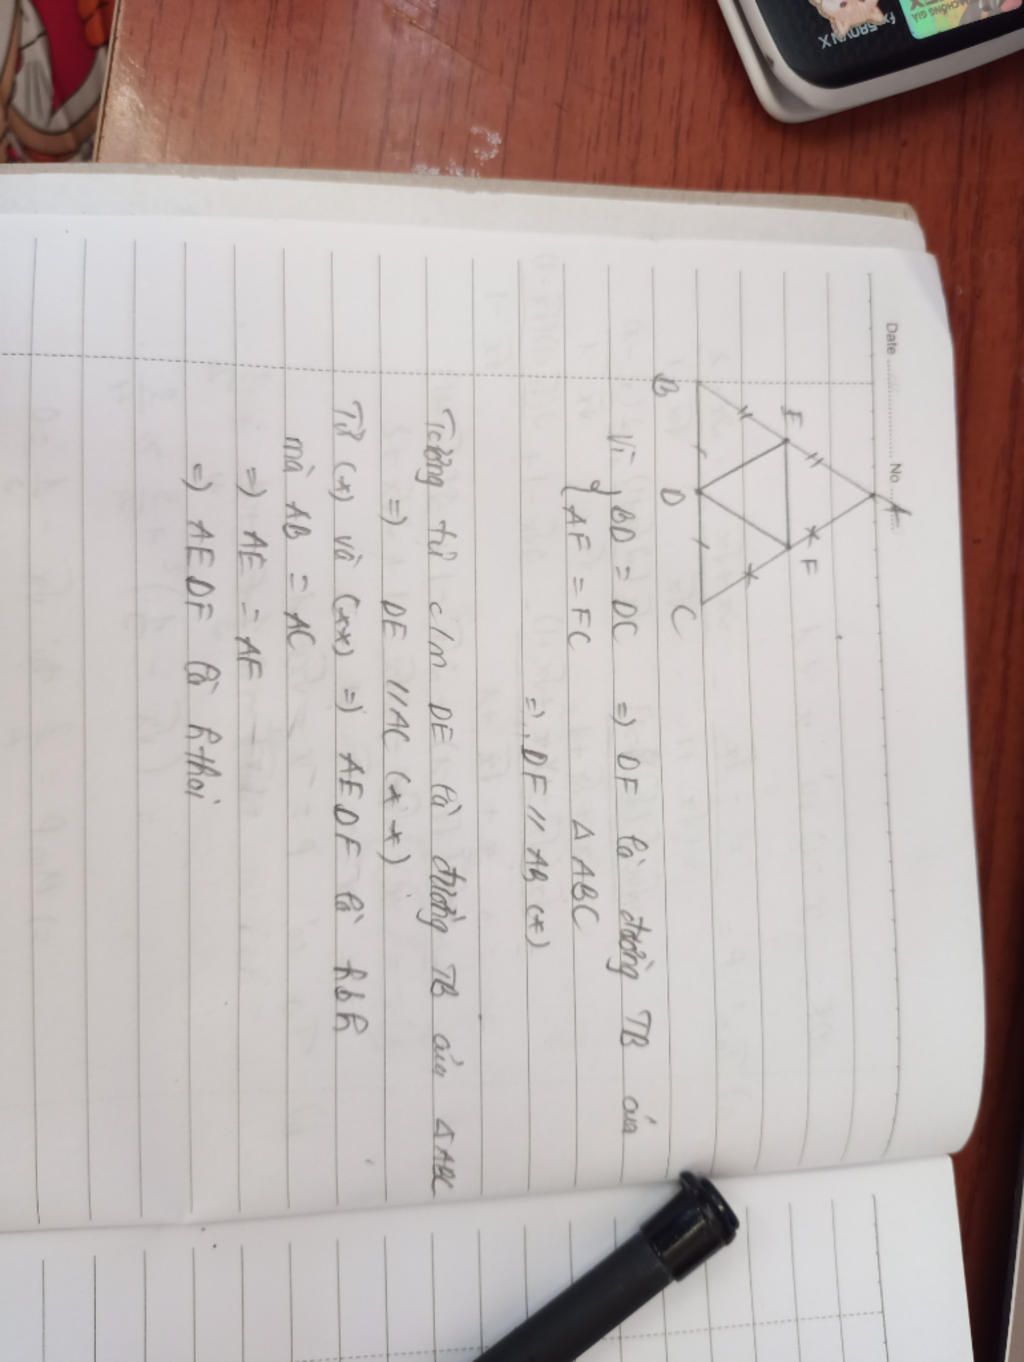 Date ........ No ....
A
E
F
B
D
C
Vì { BD = DC => DF là đường TB của
{ AF = FC Δ ABC
=> DF // AB (*)
Tương tự c/m DE là đường TB của Δ ABC
=> DE // AC (**)
Từ (*) và (**) => AEDF là hbh
mà AB = AC
=> AE = AF
=> AEDF là h.thoi
fx-580VN X
CHỐNG GIẢ